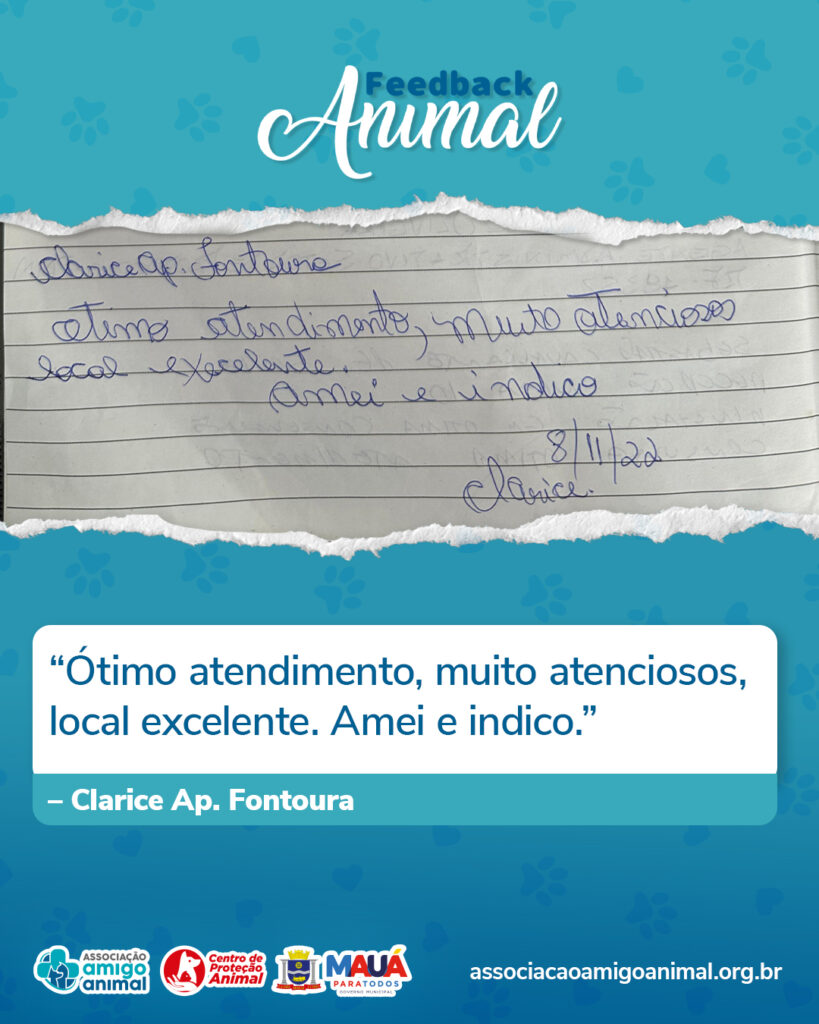 Feedback
Animal
Clarice Ap. Fontoura
otimo atendimento, muito atenciosos
local execelente.
Amei e indico
8/11/22
Clarice.
“Ótimo atendimento, muito atenciosos,
local excelente. Amei e indico.”
– Clarice Ap. Fontoura
ASSOCIAÇÃO
amigo
animal
Centro de
Proteção
Animal
MAUÁ
PARATODOS
GOVERNO MUNICIPAL
associacaoamigoanimal.org.br